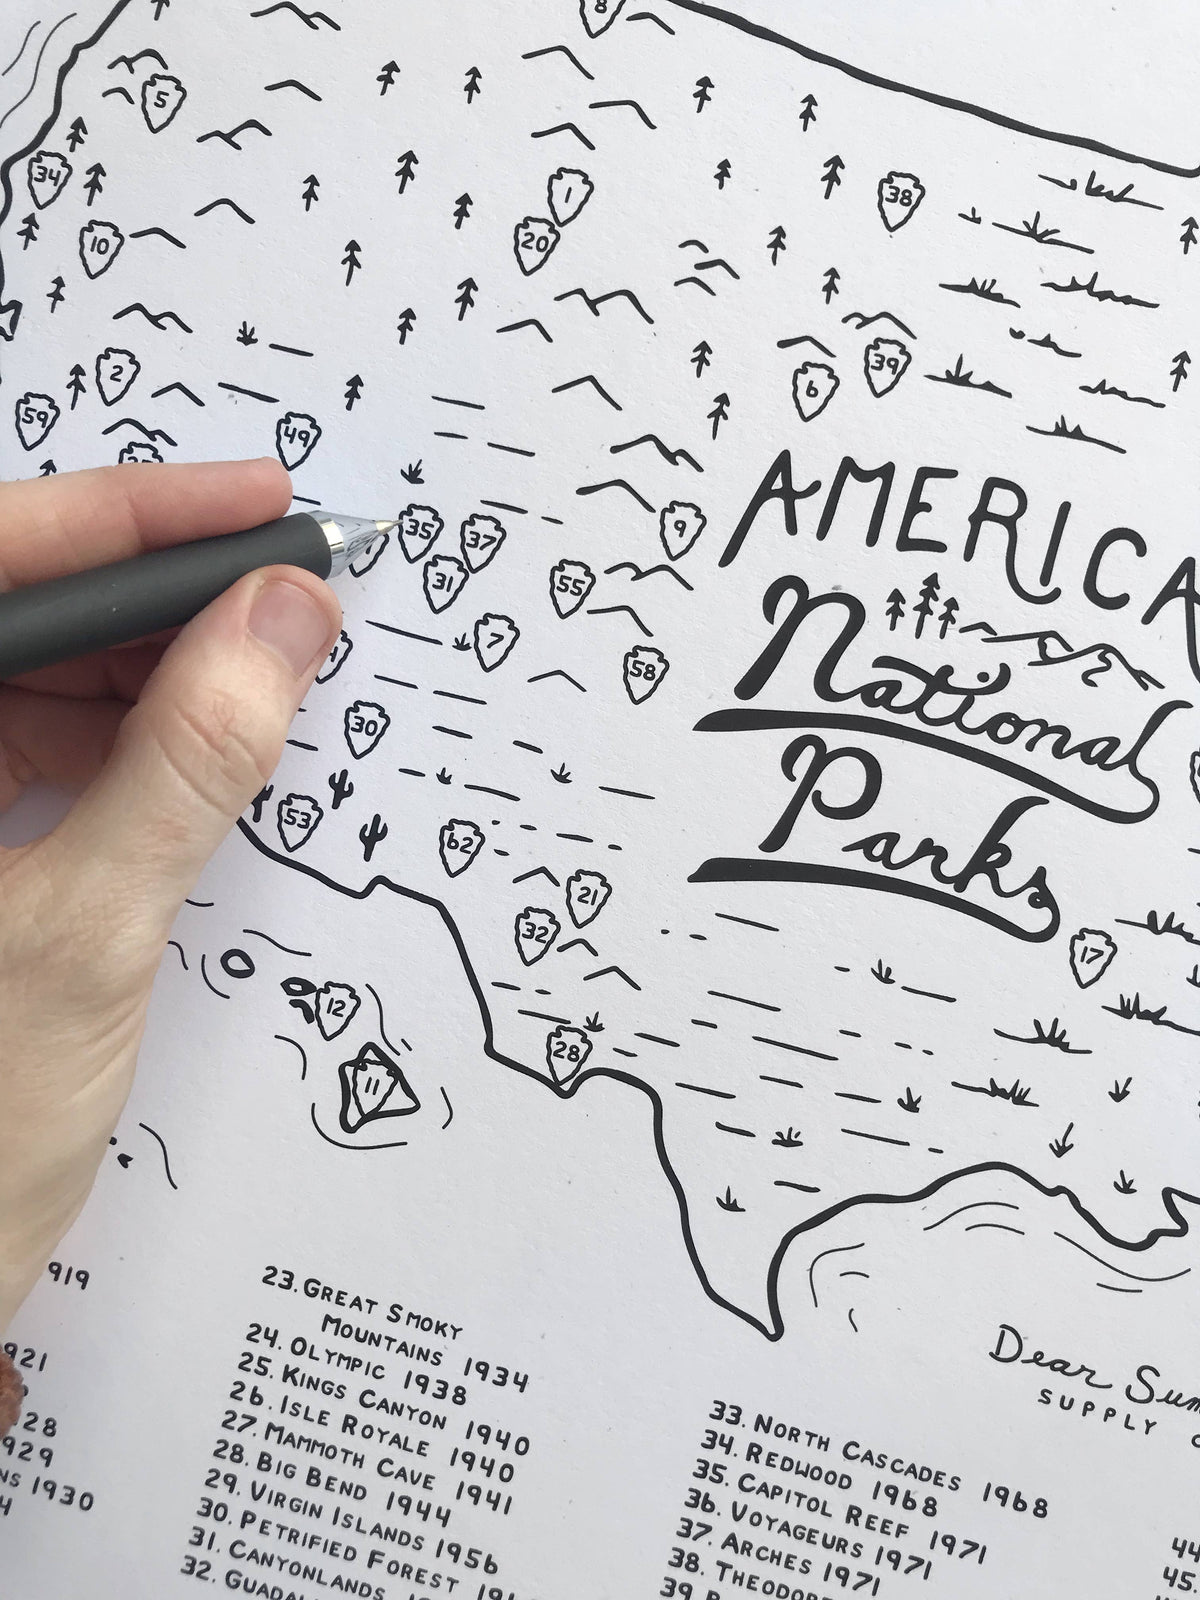 8
5
34
1
38
10
20
2
39
6
59
49
35
37
9
31
55
7
58
30
53
62
21
32
17
12
28
11
AMERICA
National
Parks
919
921
928
929
NS 1930
4
23. GREAT SMOKY
MOUNTAINS 1934
24. OLYMPIC 1938
25. KINGS CANYON 1940
26. ISLE ROYALE 1940
27. MAMMOTH CAVE 1941
28. BIG BEND 1944
29. VIRGIN ISLANDS 1956
30. PETRIFIED FOREST
31. CANYONLANDS
32.
33. NORTH CASCADES 1968
34. REDWOOD 1968
35. CAPITOL REEF 1971
36. VOYAGEURS 1971
37. ARCHES 1971
38.
39
44
45.
Dear
SUPPLY